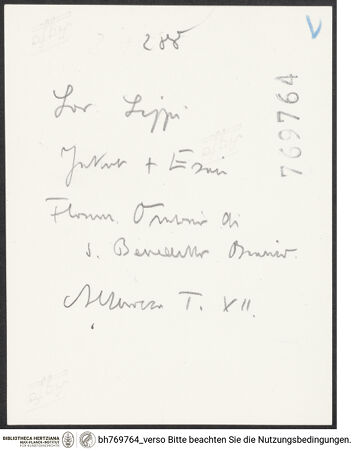 288
V
769764
Lor Lippi
Jakob + Esau
Florenz. Oratorio di
S. Benedetto Bianco.
T. XII.
BIBLIOTHECA HERTZIANA
MAX-PLANCK-INSTITUT
FÜR KUNSTGESCHICHTE
bh769764_verso Bitte beachten Sie die Nutzungsbedingungen.